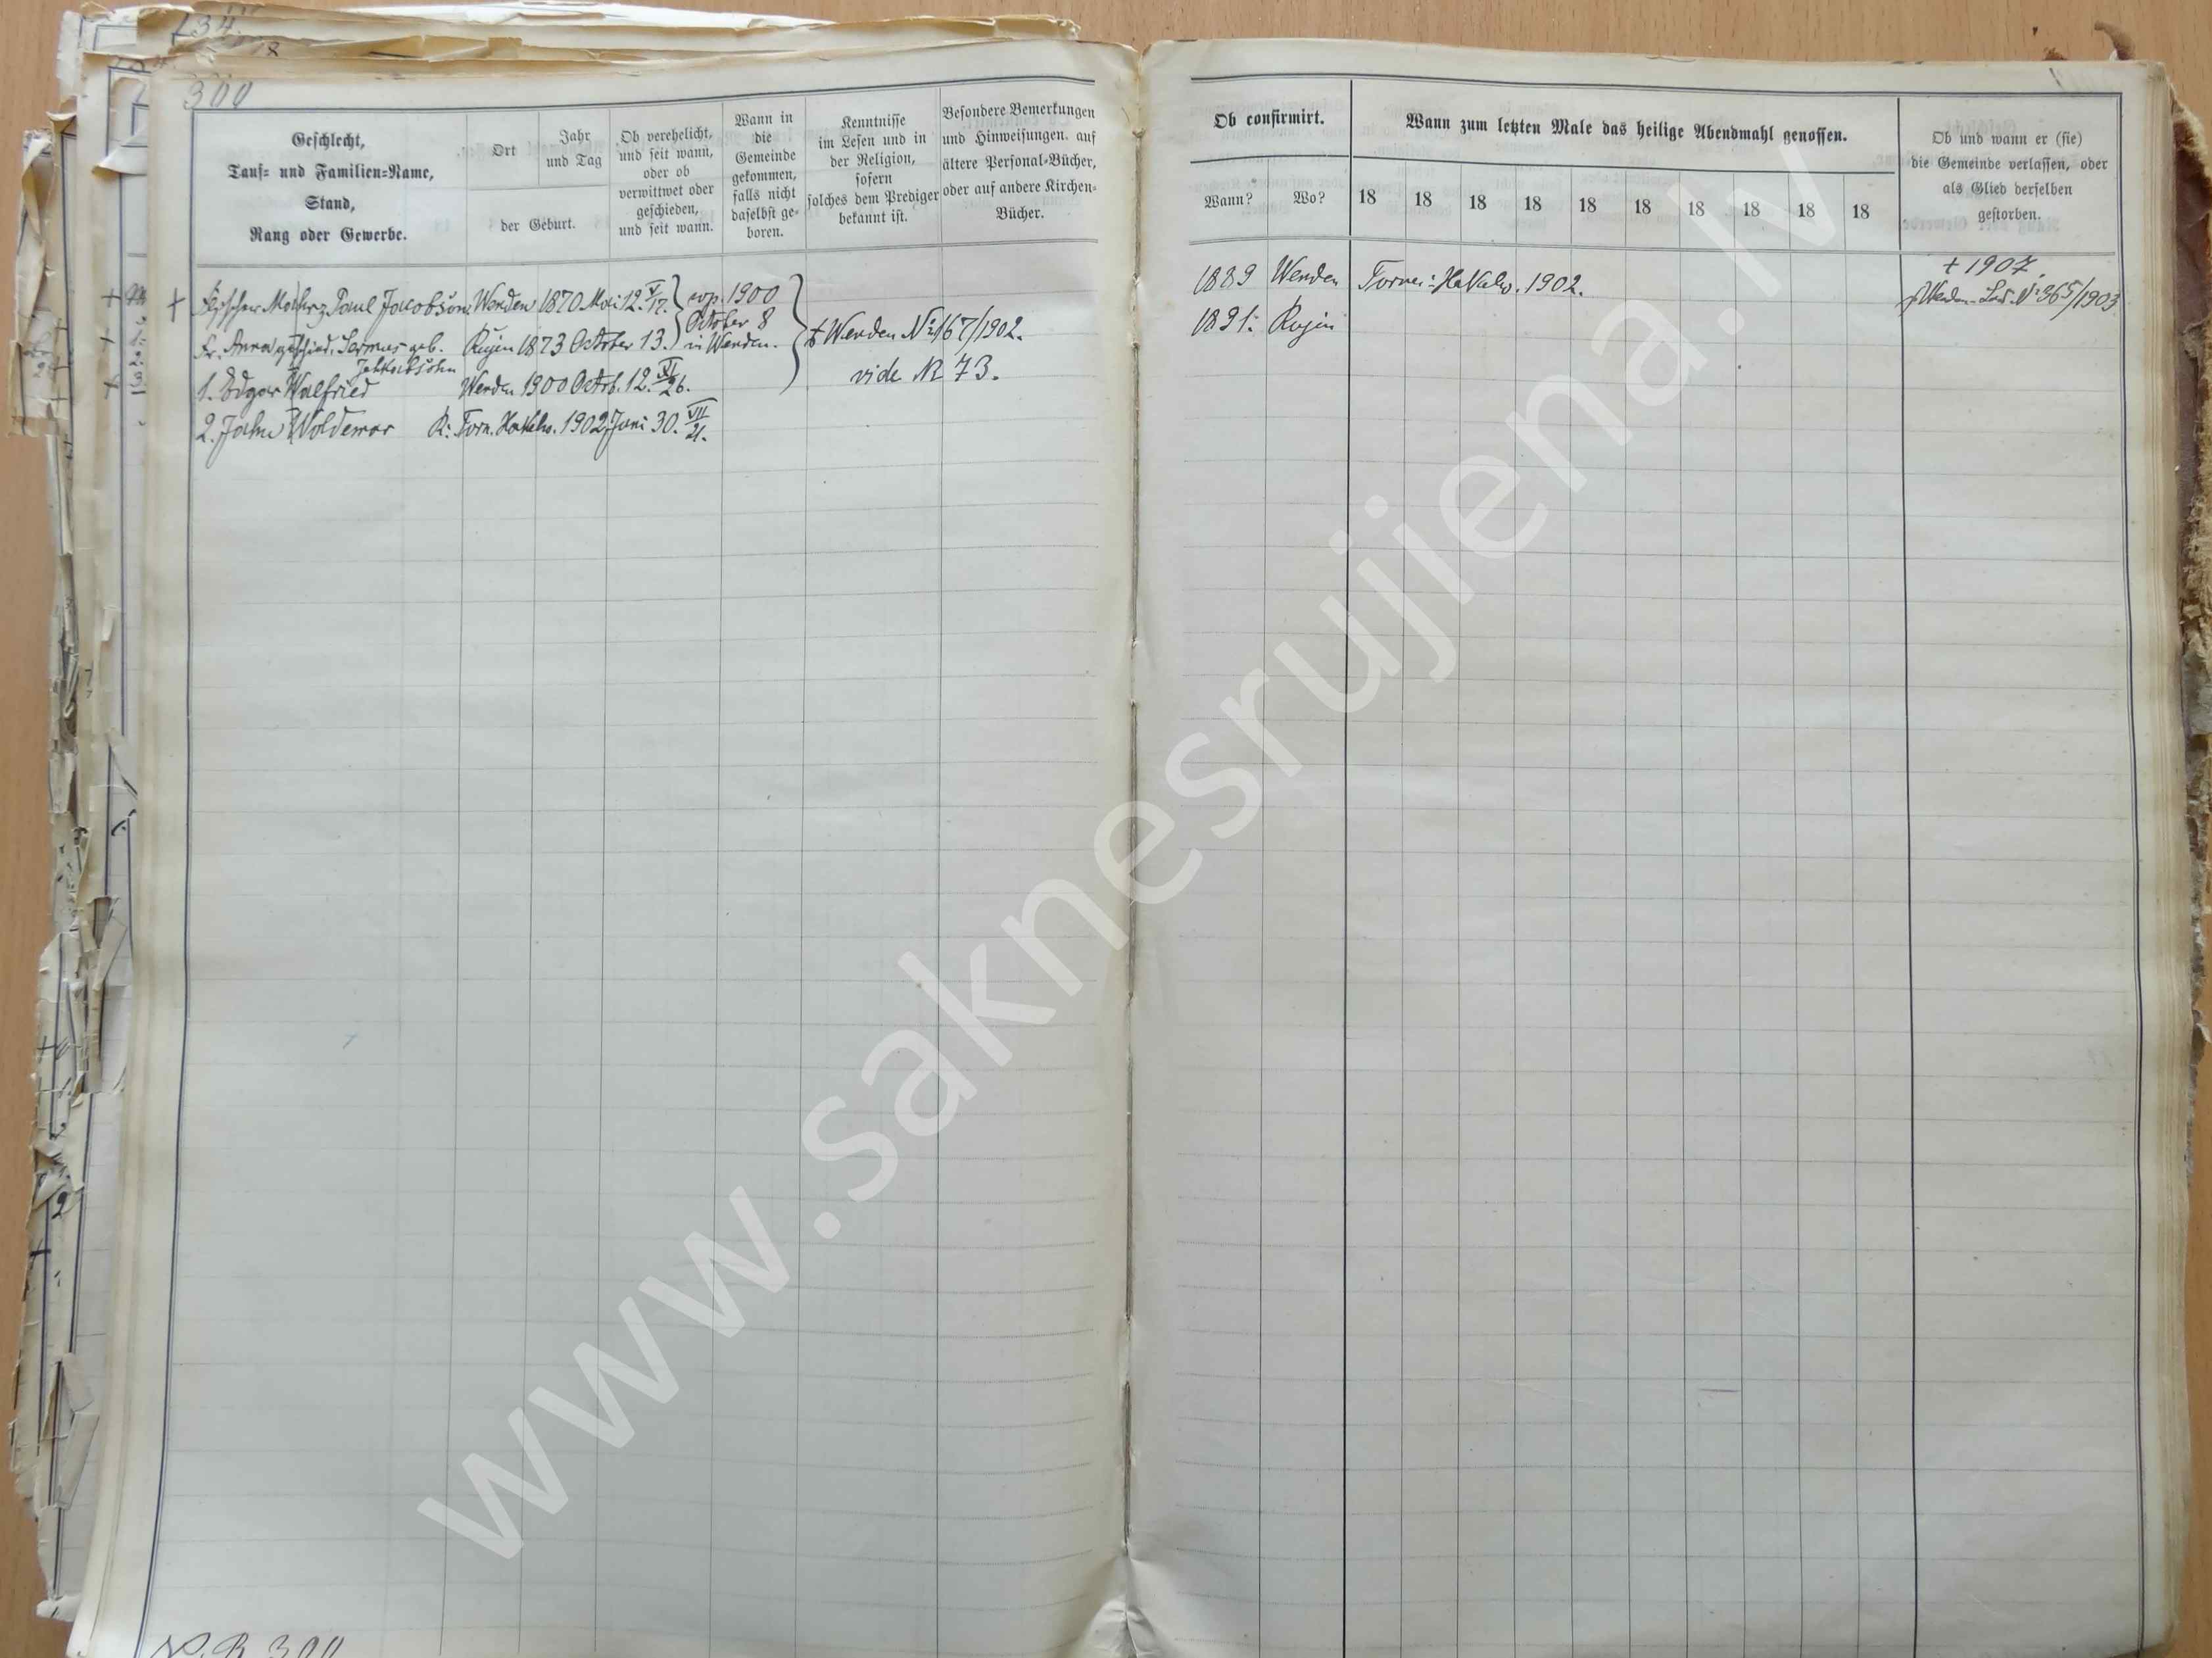 300
Geschlecht,
Tauf= und Familien=Name,
Stand,
Rang oder Gewerbe.
Ort
Jahr
und Tag
der Geburt.
Ob verehelicht,
und seit wann,
oder ob
verwittwet oder
geschieden,
und seit wann.
Wann in
die
Gemeinde
gekommen,
falls nicht
daselbst ge-
boren.
Kenntnisse
im Lesen und in
der Religion,
sofern
solches dem Prediger
bekannt ist.
Besondere Bemerkungen
und Hinweisungen auf
ältere Personal=Bücher,
oder auf andere Kirchen-
Bücher.
Paul Jacobson Wenden 1870 Mai 12. V/17. cop. 1900
October 8
in Wenden.
Fr. Anna geschied. geb. Rujen 1873 October 13.
+ Wenden No 167/1902.
1. Edgar Walfried Wenden 1900 Octob. 12. XI/26.
vide No 73.
2. Jahn Woldemar R: Torn. 1902 Juni 30. VII/21.
Ob confirmirt.
Wann?
Wo?
Wann zum letzten Male das heilige Abendmahl genossen.
18 18 18 18 18 18 18 18 18 18
Ob und wann er (sie)
die Gemeinde verlassen, oder
als Glied derselben
gestorben.
1889 Wenden 1902.
+ 1907.
No 365/1903
1891. Rujen
www.saknesrujiena.lv
P.B. 300